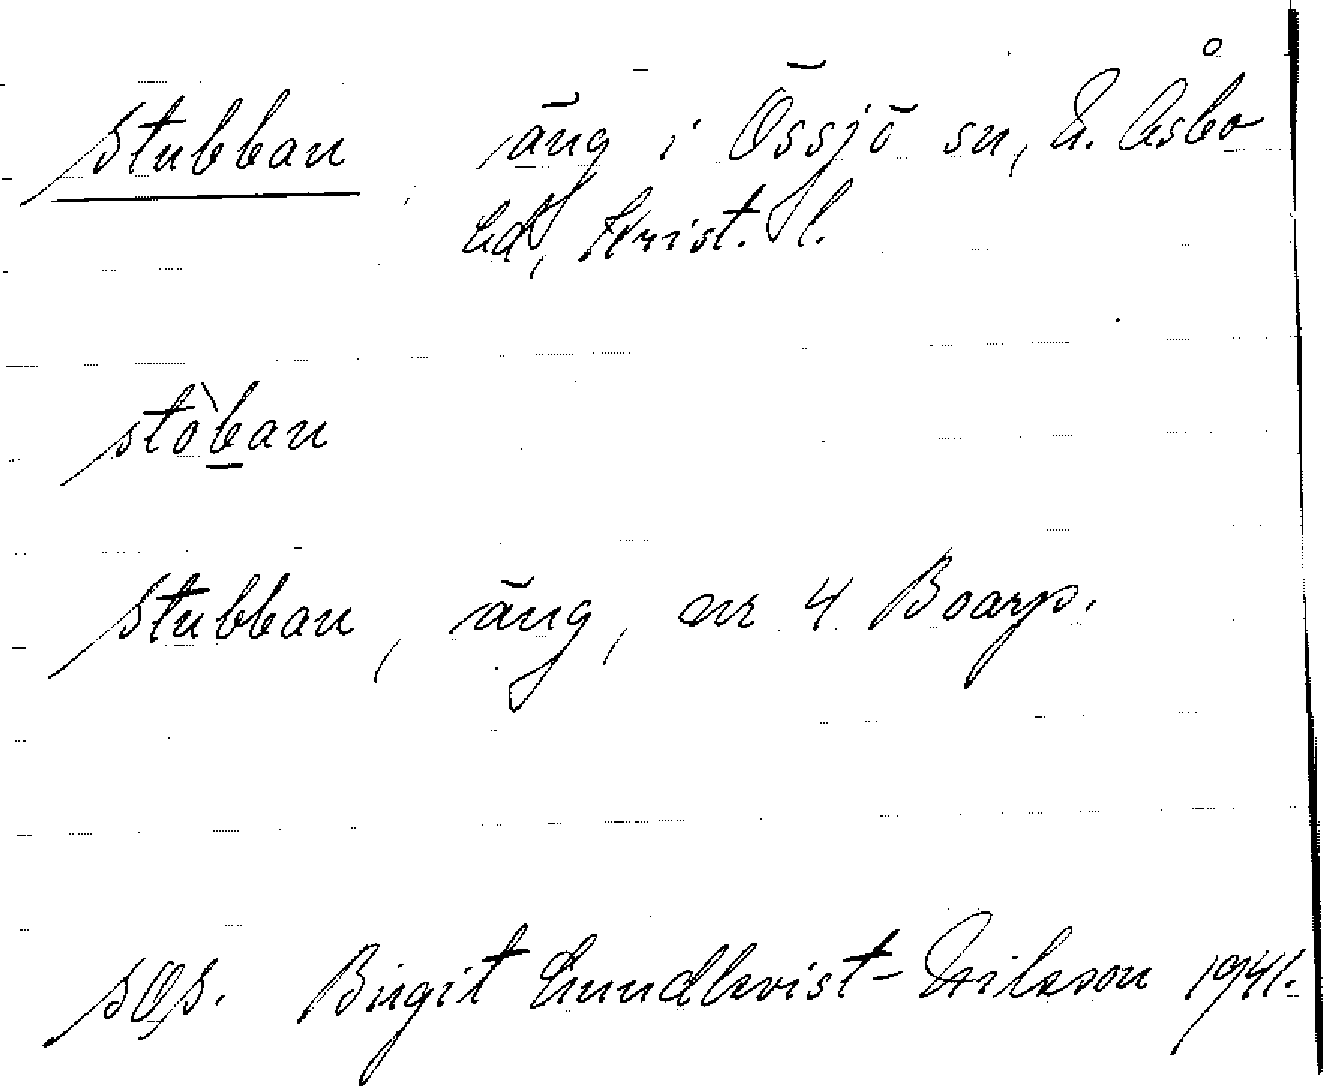 Stubban, äng i Össjö sn, S. Åsbo
hd, Krist. l.
stòban
Stubban, äng, nr 4 Boarp.
Birgit Lundkvist-Nilsson 1941.